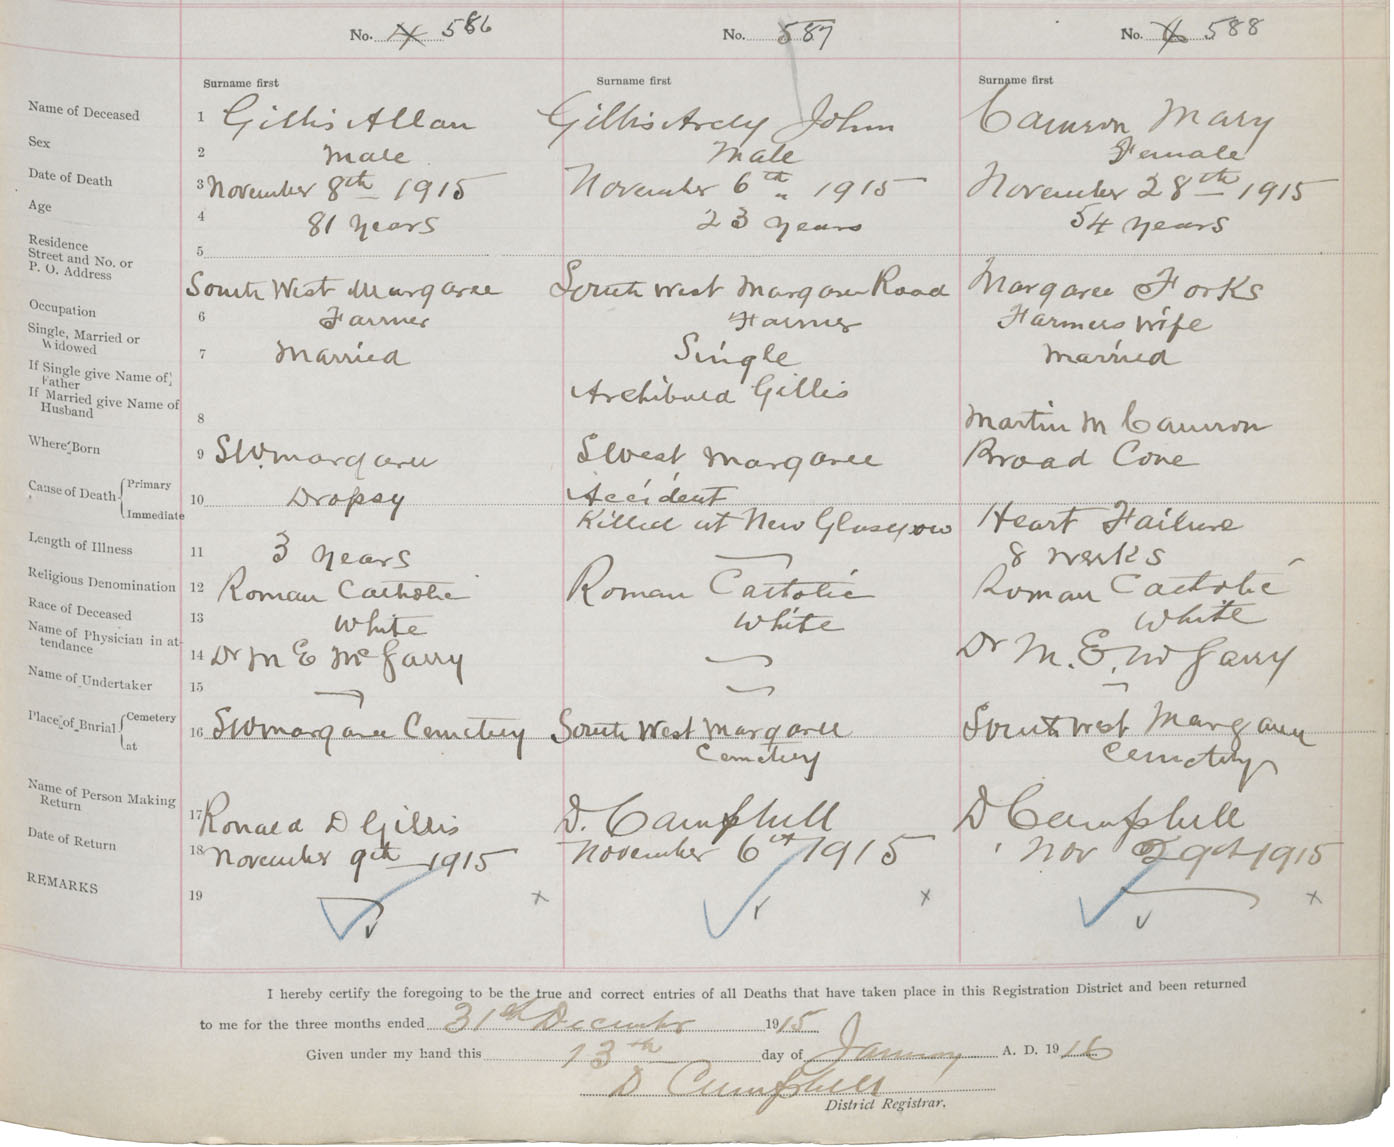 No. 586 No. 587 No. 588
Surname first Surname first Surname first
Name of Deceased 1 Gillis Allan Gillis Archy John Cameron Mary
Sex 2 Male Male Female
Date of Death 3 November 8th 1915 November 6th 1915 November 28th 1915
Age 4 81 years 23 years 54 years
Residence
Street and No. or
P. O. Address
5 South West Margaree South West Margaree Road Margaree Forks
Occupation 6 Farmer Farmer Farmers wife
Single, Married or
Widowed
7 Married Single Married
If Single give Name of
Father
Archibald Gillis
If Married give Name of
Husband
8 Martin M Cameron
Where Born 9 S W. Margaree S West Margaree Broad Cove
Cause of Death Primary 10 Dropsy Accident
Immediate Killed at New Glasgow Heart Failure
Length of Illness 11 3 years 8 weeks
Religious Denomination 12 Roman Catholic Roman Catholic Roman Catholic
Race of Deceased 13 White White White
Name of Physician in at-
tendance
14 Dr M E McGarry Dr M. E. McGarry
Name of Undertaker 15
Place of Burial Cemetery 16 S W Margaree Cemetery South West Margaree South West Margaree
at Cemetery Cemetery
Name of Person Making
Return
17 Ronald D Gillis D. Campbell D Campbell
Date of Return 18 November 9th 1915 November 6th 1915 Nov 29th 1915
REMARKS 19 x x x
I hereby certify the foregoing to be the true and correct entries of all Deaths that have taken place in this Registration District and been returned
to me for the three months ended 31st December 1915
Given under my hand this 13th day of January A. D. 1916
D Campbell
District Registrar.